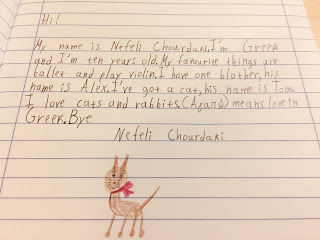 Hi!
My name is Nefeli Chourdaki.I'm Greek
and I'm ten years old.My favourite things are
ballet and play violin.I have one blother,his
name is Alex.I've got a cat,his name is Tom.
I love cats and rabbits.(Αγαπώ) means love in
Greek.Bye
Nefeli Chourdaki